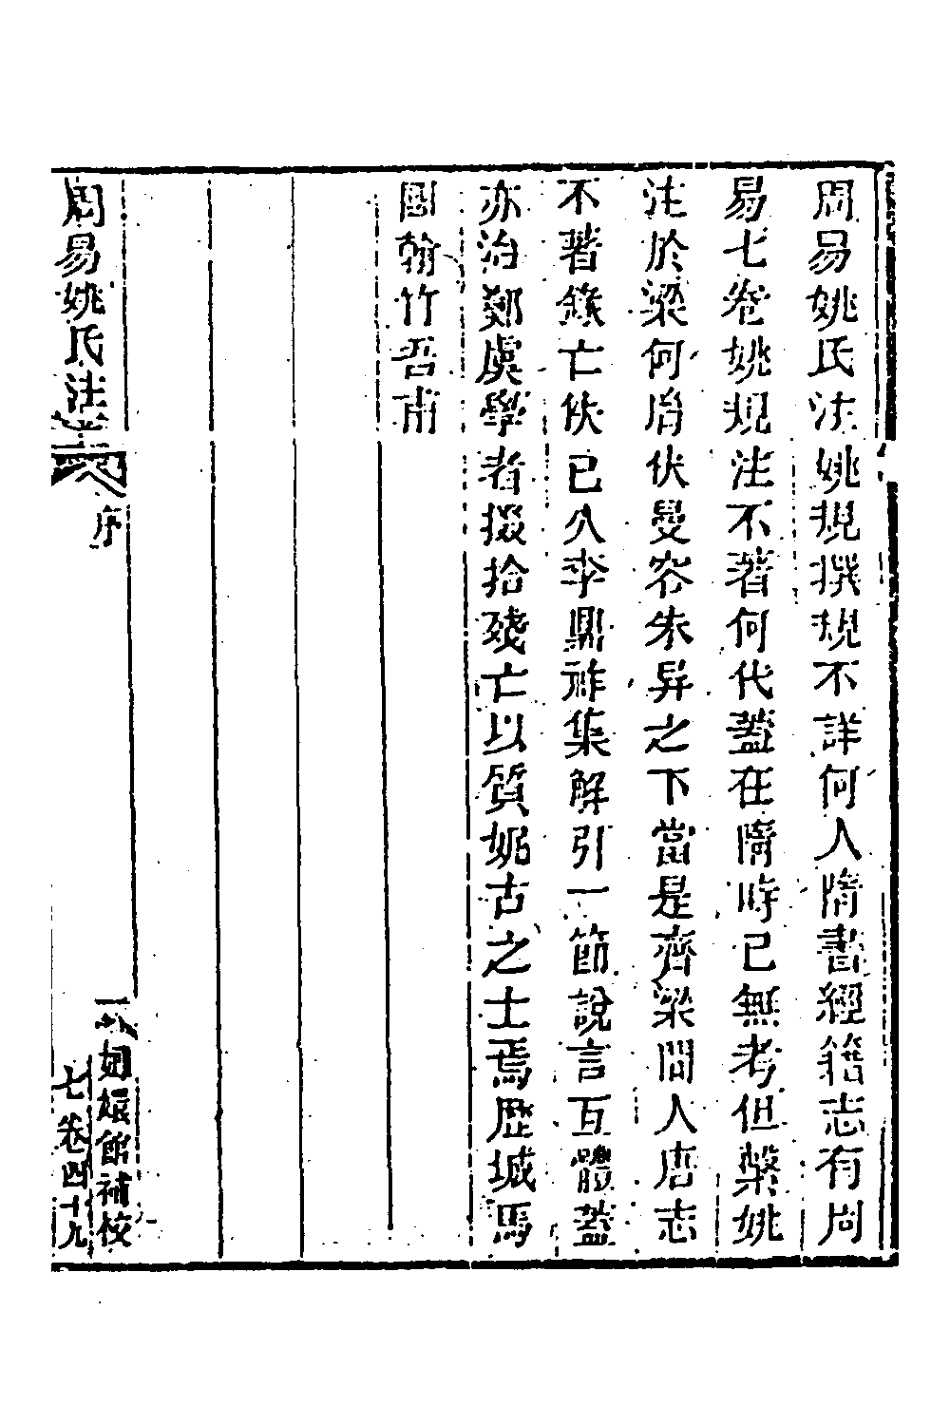 周易姚氏注姚規撰規不詳何人隋書經籍志有周
易七卷姚規注不著何代蓋在隋時已無考但槩姚
注於梁何胤伏曼容朱异之下當是齊梁間人唐志
不著錄亡佚已久李鼎祚集解引一節說言互體蓋
亦治鄭虞學者掇拾殘亡以質妮古之士焉歷城馬
國翰竹吾甫
周易姚氏注
序
一
嫏嬛館補校
七卷四十九